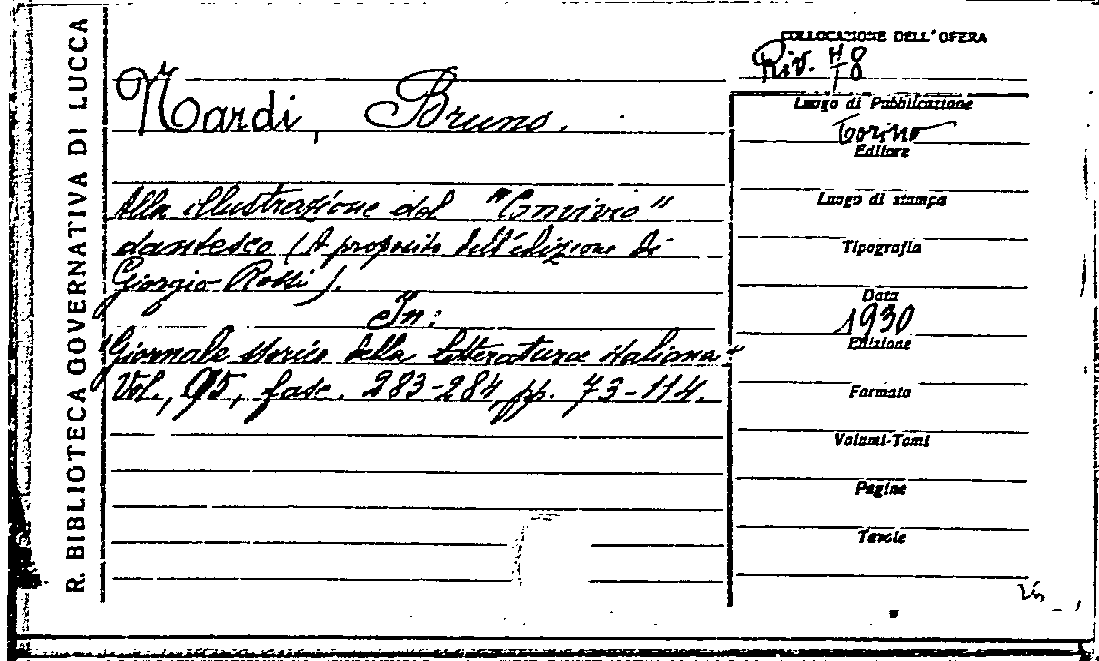 R. BIBLIOTECA GOVERNATIVA DI LUCCA
Nardi, Bruno.
Alla illustrazione del "Convivio"
dantesco (A proposito dell'edizione di
Giorgio Rossi).
In:
"Giornale storico della letteratura italiana"
Vol., 95, fasc. 283-284, pp. 73-114.
COLLOCAZIONE DELL'OPERA
Riv. 78
Luogo di Pubblicazione
Torino
Editore
Luogo di stampa
Tipografia
Data
1930
Edizione
Formato
Volumi-Tomi
Pagine
Tavole